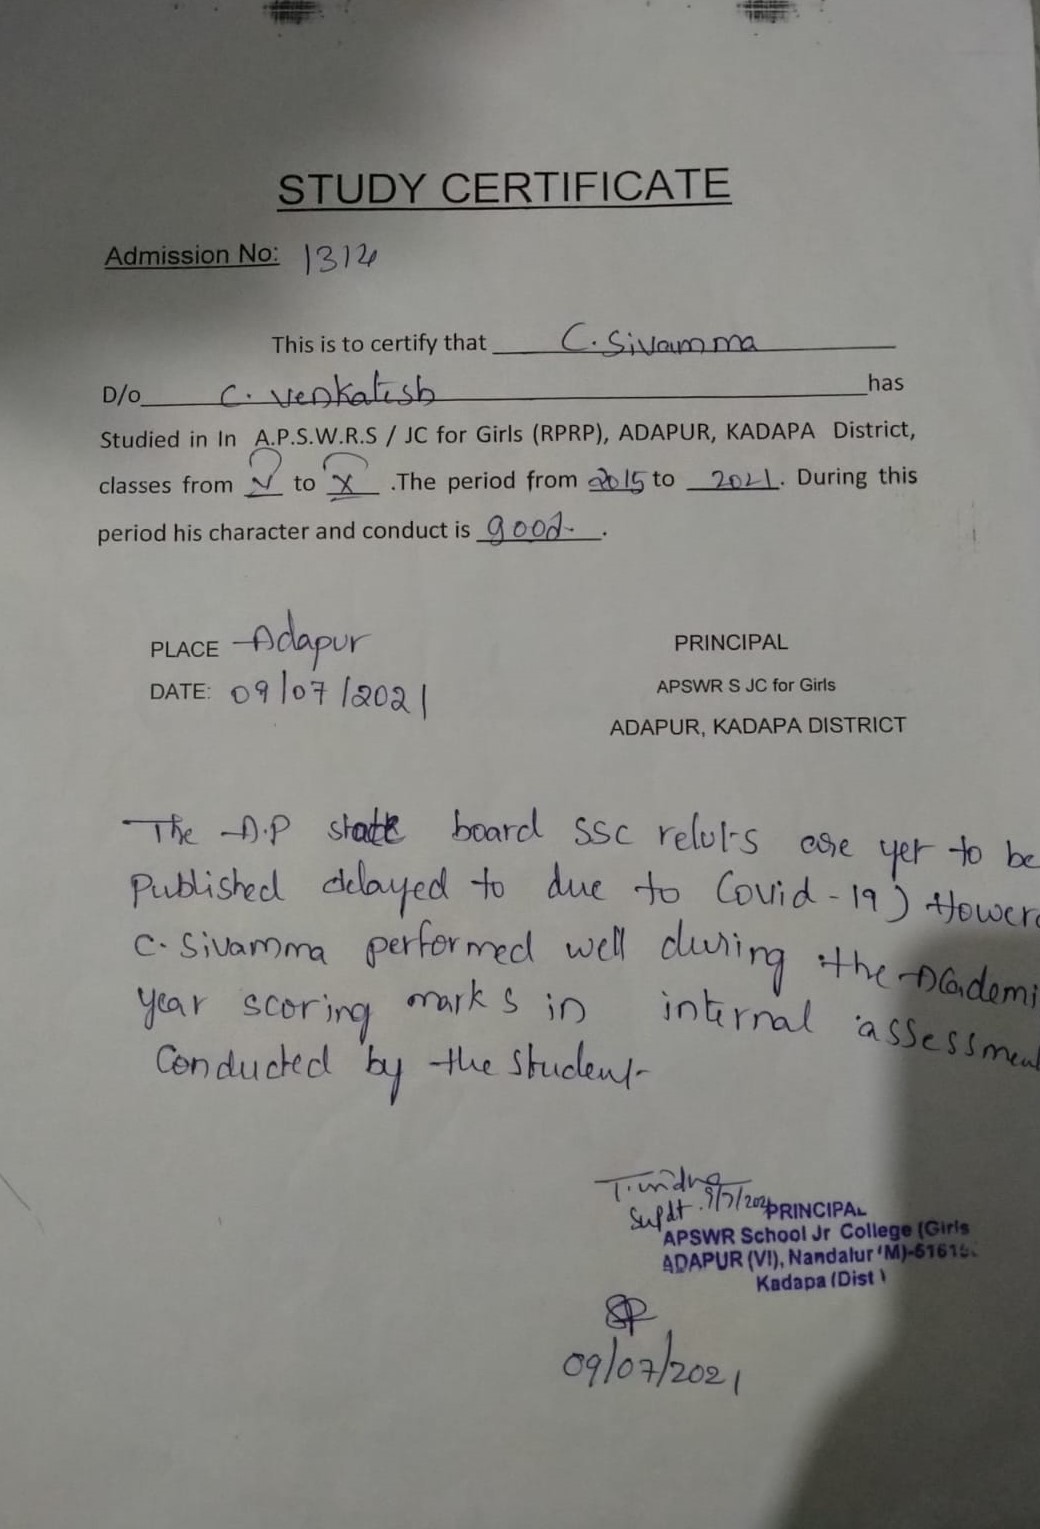 STUDY CERTIFICATE
Admission No: 1314
This is to certify that C. Sivamma
D/o C. Venkatesh has
Studied in In A.P.S.W.R.S / JC for Girls (RPRP), ADAPUR, KADAPA District,
classes from V to X .The period from 2015 to 2021. During this
period his character and conduct is good.
PLACE Adapur
PRINCIPAL
DATE: 09/07/2021
APSWR S JC for Girls
ADAPUR, KADAPA DISTRICT
The A.P state board SSC reluts are yet to be
Published delayed to due to Covid-19) Howere
C. Sivamma performed well during the Academi
year scoring marks in internal assessment
Conducted by the Student
Supdt. 9/7/2021 PRINCIPAL
APSWR School Jr College (Girls
ADAPUR (VI), Nandalur (M)-
Kadapa (Dist)
09/07/2021